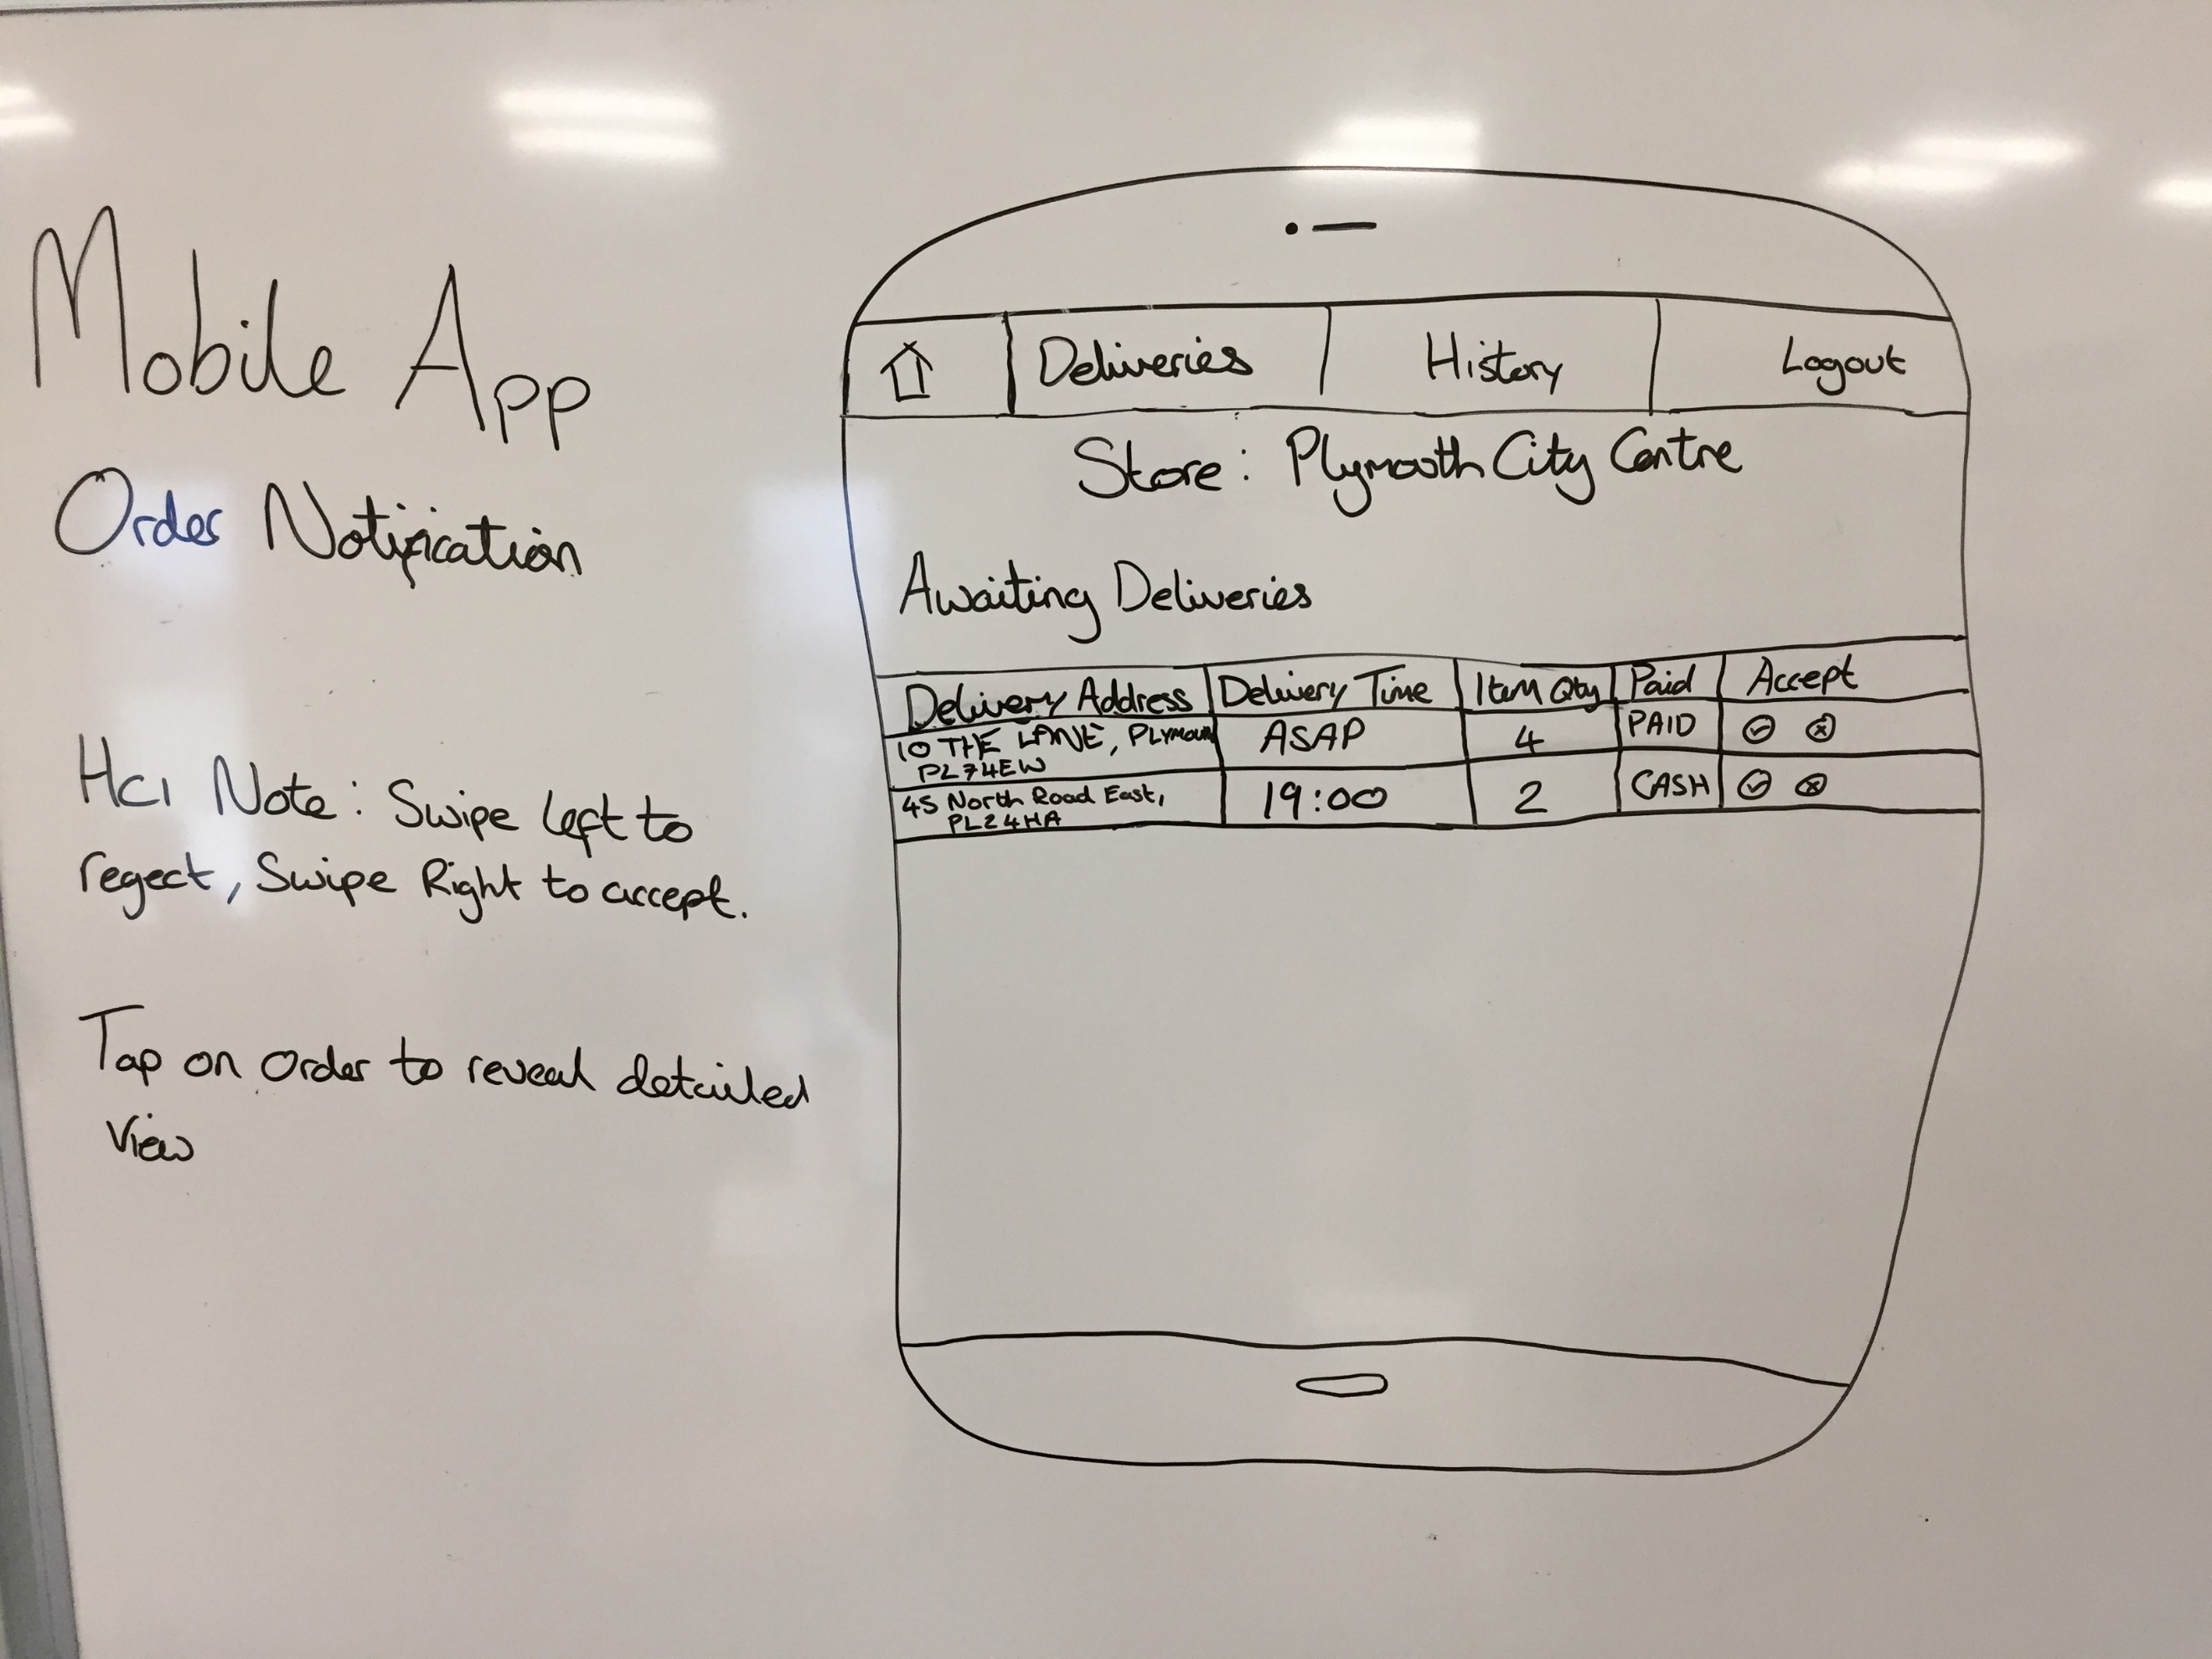 Mobile App
Order Notification
HCI Note: Swipe left to
regect, Swipe Right to accept.
Tap on order to reveal detailed
view
Deliveries History Logout
Store: Plymouth City Centre
Awaiting Deliveries
Delivery Address Delivery Time Item Qty Paid Accept
10 THE LANE, PLYMOUTH ASAP 4 PAID
PL74EW
45 North Road East, 19:00 2 CASH
PL24HA